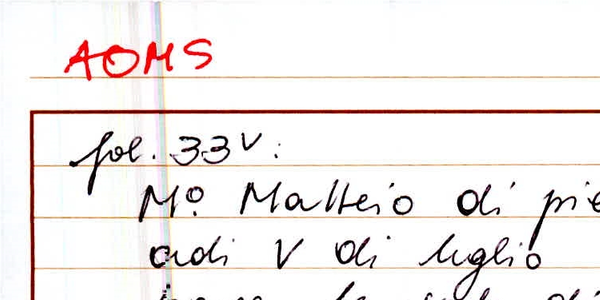 AOMS
fol. 33v:
Mo. Matteio di pie
adi V di luglio